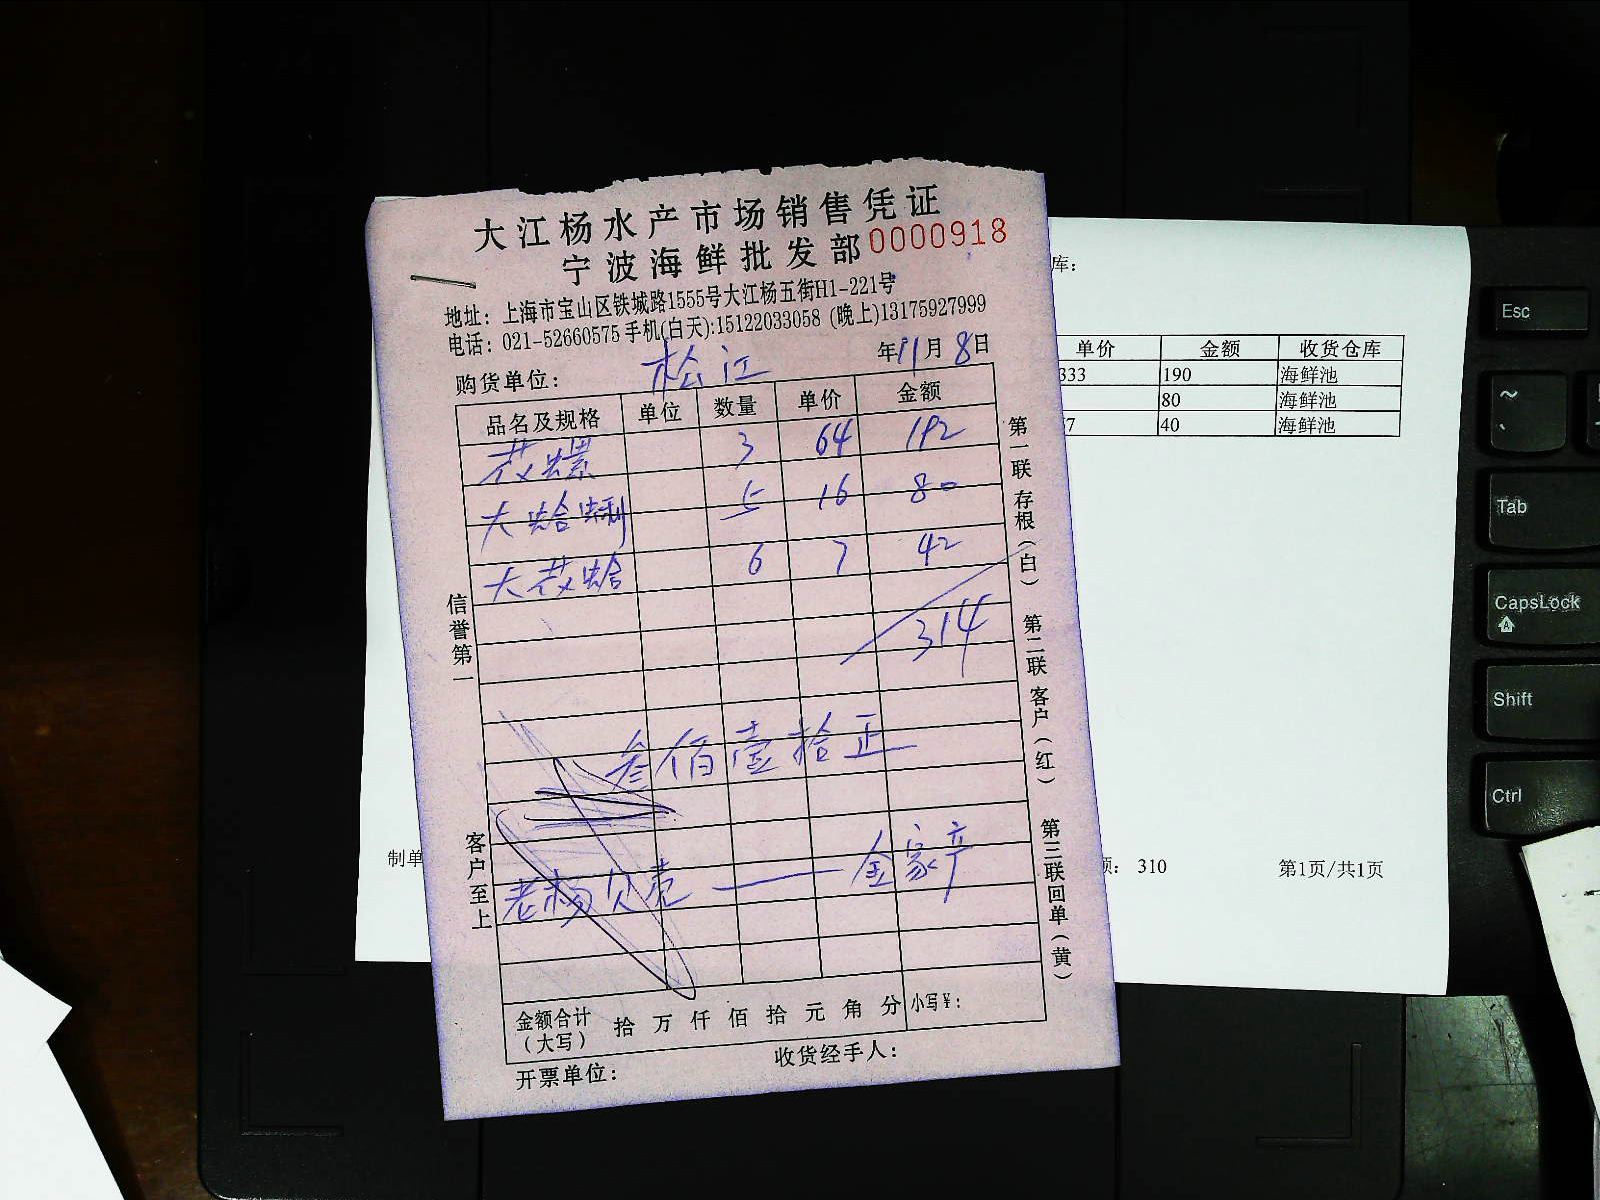 大江杨水产市场销售凭证
宁波海鲜批发部 0000918
地址：上海市宝山区铁城路1555号大江杨五街H1-221号
电话：021-52660575 手机(白天):15122033058 (晚上)13175927999
购货单位： 松江 年11月8日
品名及规格 单位 数量 单价 金额
花螺 3 64 192
大蛤蜊 5 16 80
大花蛤 6 7 42
314
叁佰壹拾正
老杨贝壳——金家产
金额合计（大写） 拾 万 仟 佰 拾 元 角 分 小写¥：
开票单位： 收货经手人：
信誉第一
客户至上
第一联 存根（白） 第二联 客户（红） 第三联回单（黄）
库：
单价 金额 收货仓库
333 190 海鲜池
80 海鲜池
7 40 海鲜池
制单
额： 310 第1页/共1页
Esc
~
Tab
CapsLock
Shift
Ctrl